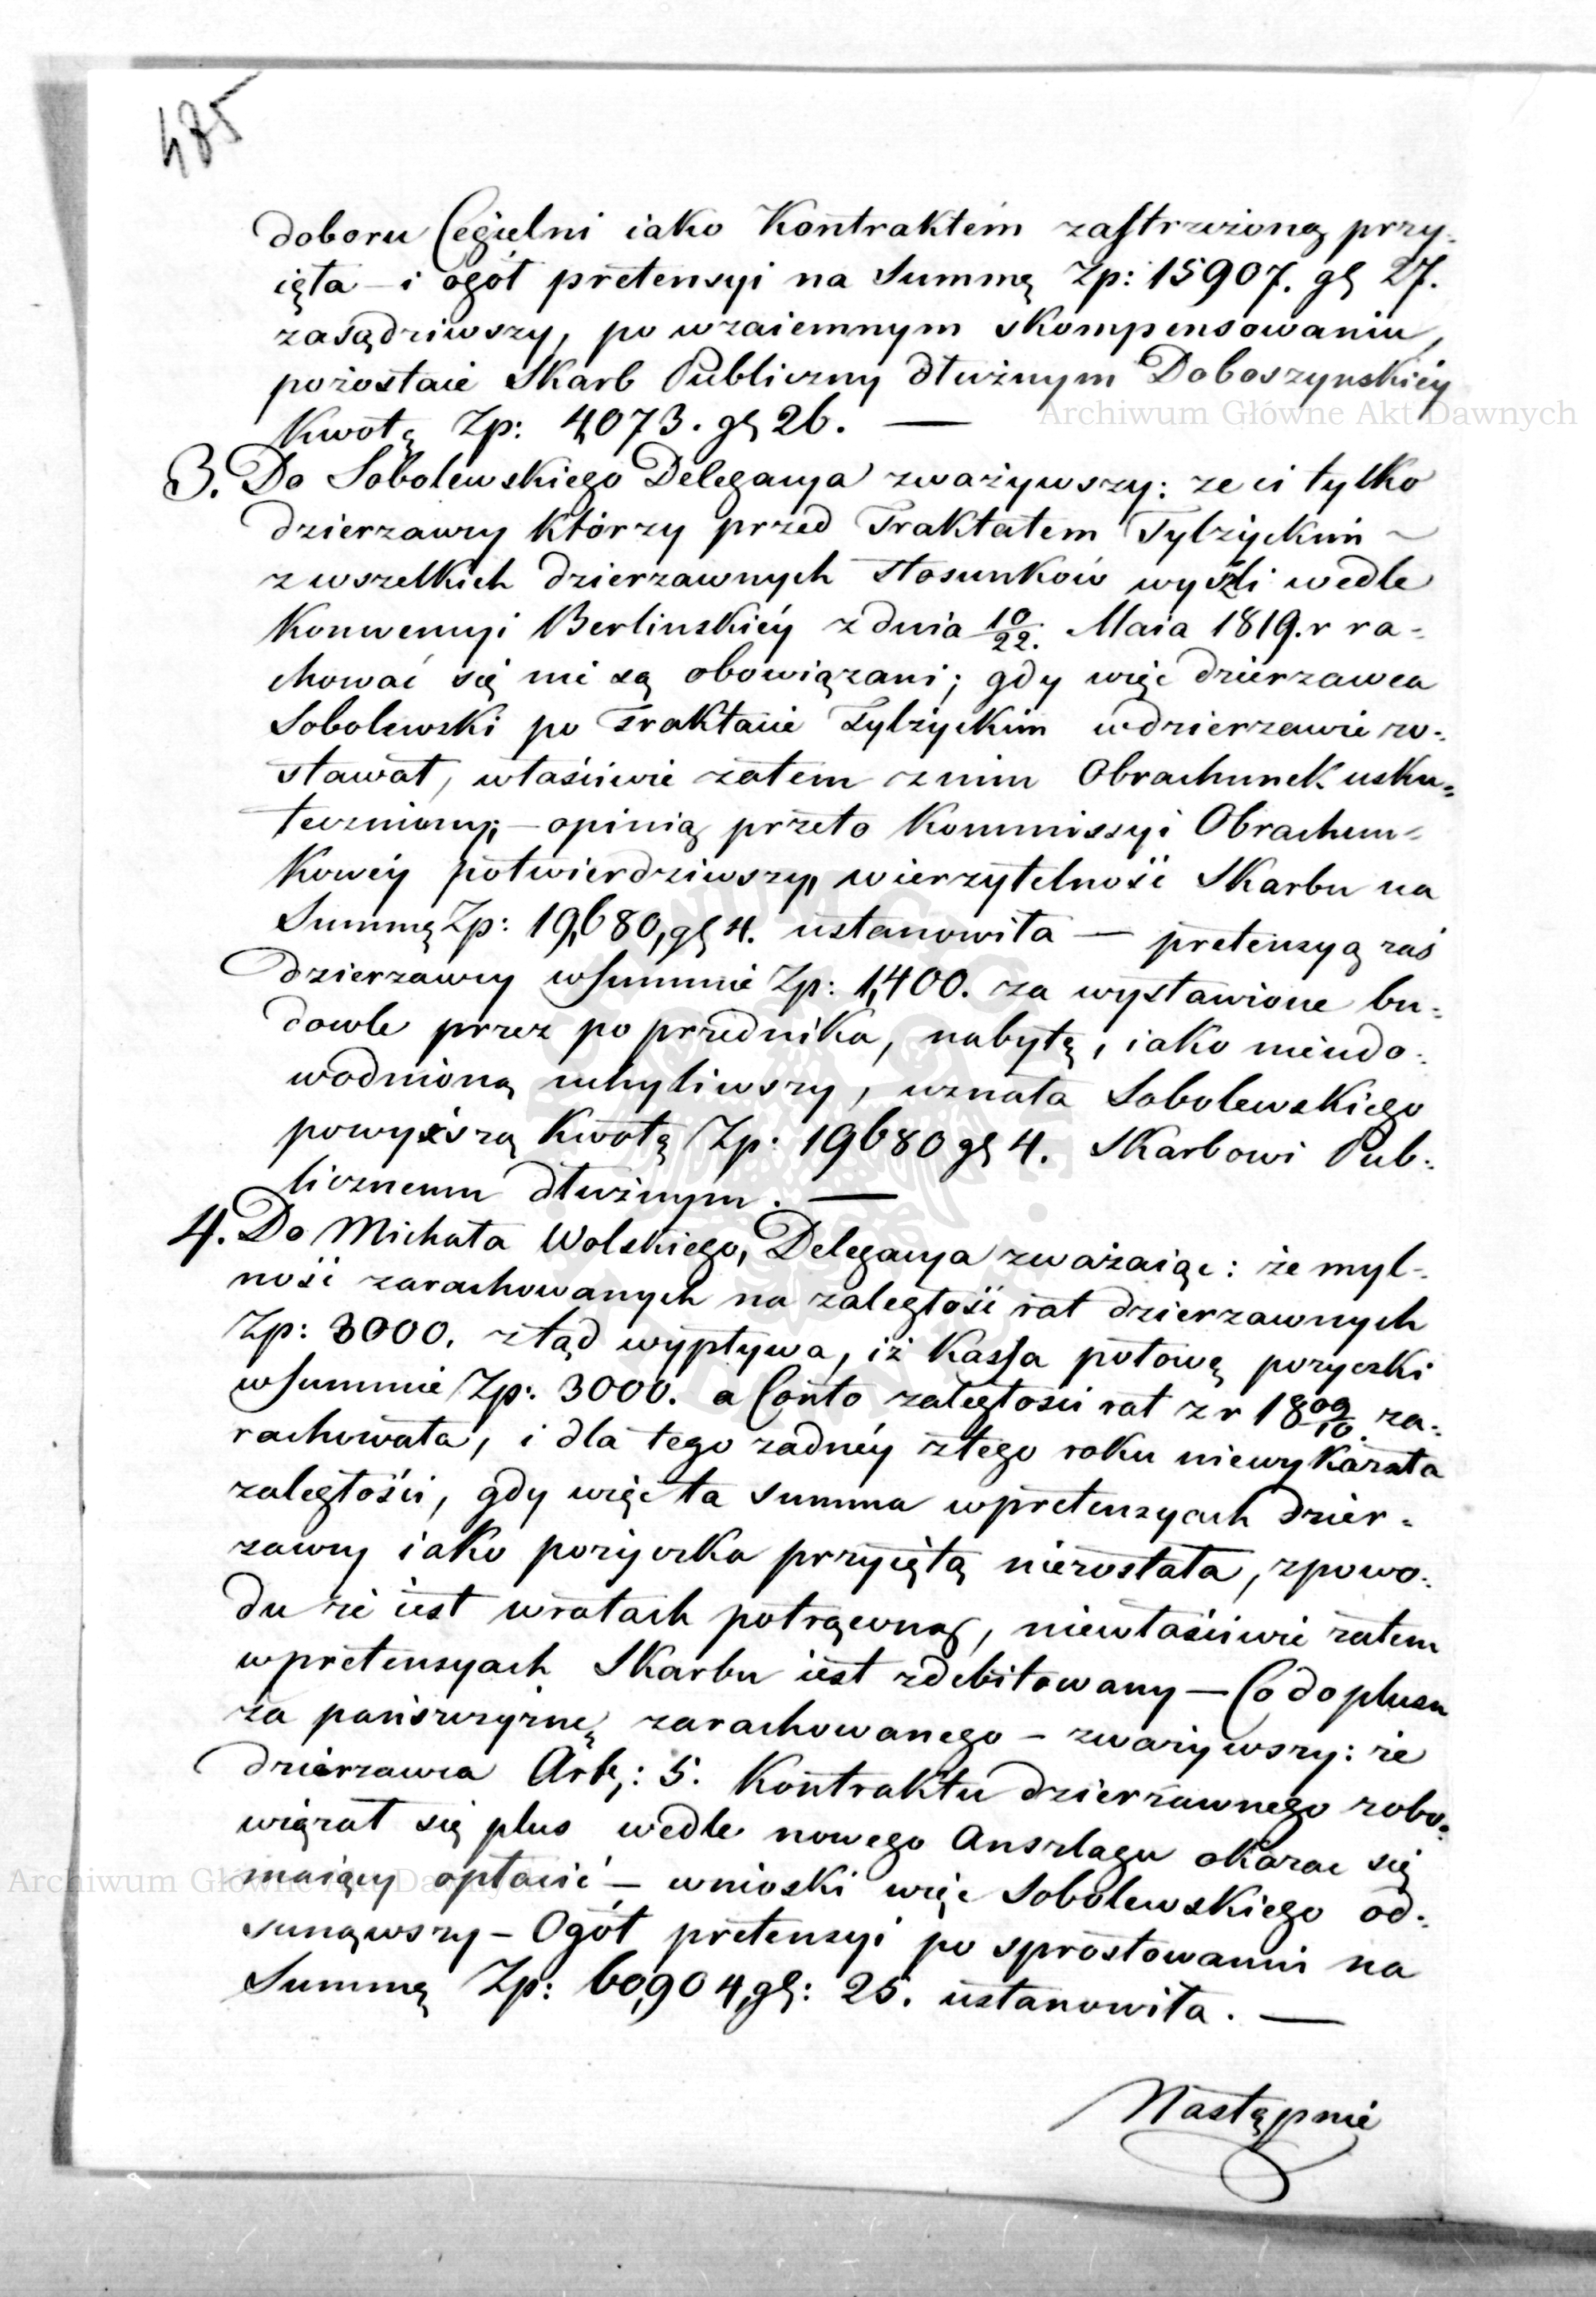 485
doboru Cegielni iako Kontraktem zastrzeżoną przy-
ięta – i ogół pretensyi na Summę Zp: 15907. gł 27.
zasądziwszy, po wzaiemnym skompensowaniu,
pozostaie Skarb Publiczny dłużnym Doboszynskiéy
Kwotę Zp: 4,073. gł 26. —
3. Do Sobolewskiego Delegacya zważywszy: ze ci tylko
dzierzawcy którzy przed Traktatem Tylżyckim ~
z wszelkich dzierzawnych stosunków wyszli wedle
Konwencyi Berlinskiéy z dnia 10/22. Maia 1819. r ra-
chować się nie są obowiązani; gdy więc dzierzawca
Sobolewski po Traktacie Tylżyckim w dzierzawie zo-
stawał, właściwie zatem z nim Obrachunek usku-
teczniony; – opinią przeto Kommissyi Obrachun-
kowéy potwierdziwszy, wierzytelność Skarbu na
Summę Zp: 19,680, gł 4. ustanowiła — pretensyą zaś
dzierzawcy w Summie Zp: 1,400. za wystawione bu-
dowle przez poprzednika, nabytę, iako nieudo-
wodnioną uchyliwszy, uznała Sobolewskiego
powyższą Kwotę Zp: 19680 gł 4. Skarbowi Pub-
licznemu dłużnym. —
4. Do Michała Wolskiego, Delegacya zważaiąc: że myl-
ność zarachowanych na zaległość rat dzierzawnych
Zp: 3000. ztąd wypływa, iż Kassa połowę pozyczki
w Summie Zp: 3000. a Conto zaległosci rat z r 1809/10. za-
rachowała, i dla tego zadnéy z tego roku niewykazała
zaległości, gdy więc ta summa w pretensyach dzier-
zawcy iako pożyczka przyiętą niezostała, z powo-
du że iest w ratach potrąconą, niewłaściwie zatem
w pretensyach Skarbu iest zdebitowany — Co do plusu
za pańszczyznę zarachowanego – zważywszy: że
dzierzawca Artę: 5. Kontraktu dzierzawnego zobo-
wiązał się plus wedle nowego Anszlagu okazać się
maiący opłacić – wnioski więc Sobolewskiego od-
sunąwszy – Ogół pretensyi po sprostowaniu na
Summę Zp: 60,904, gł: 25. ustanowiła. —
Następnie
Archiwum Główne Akt Dawnych
Archiwum Główne Akt Dawnych